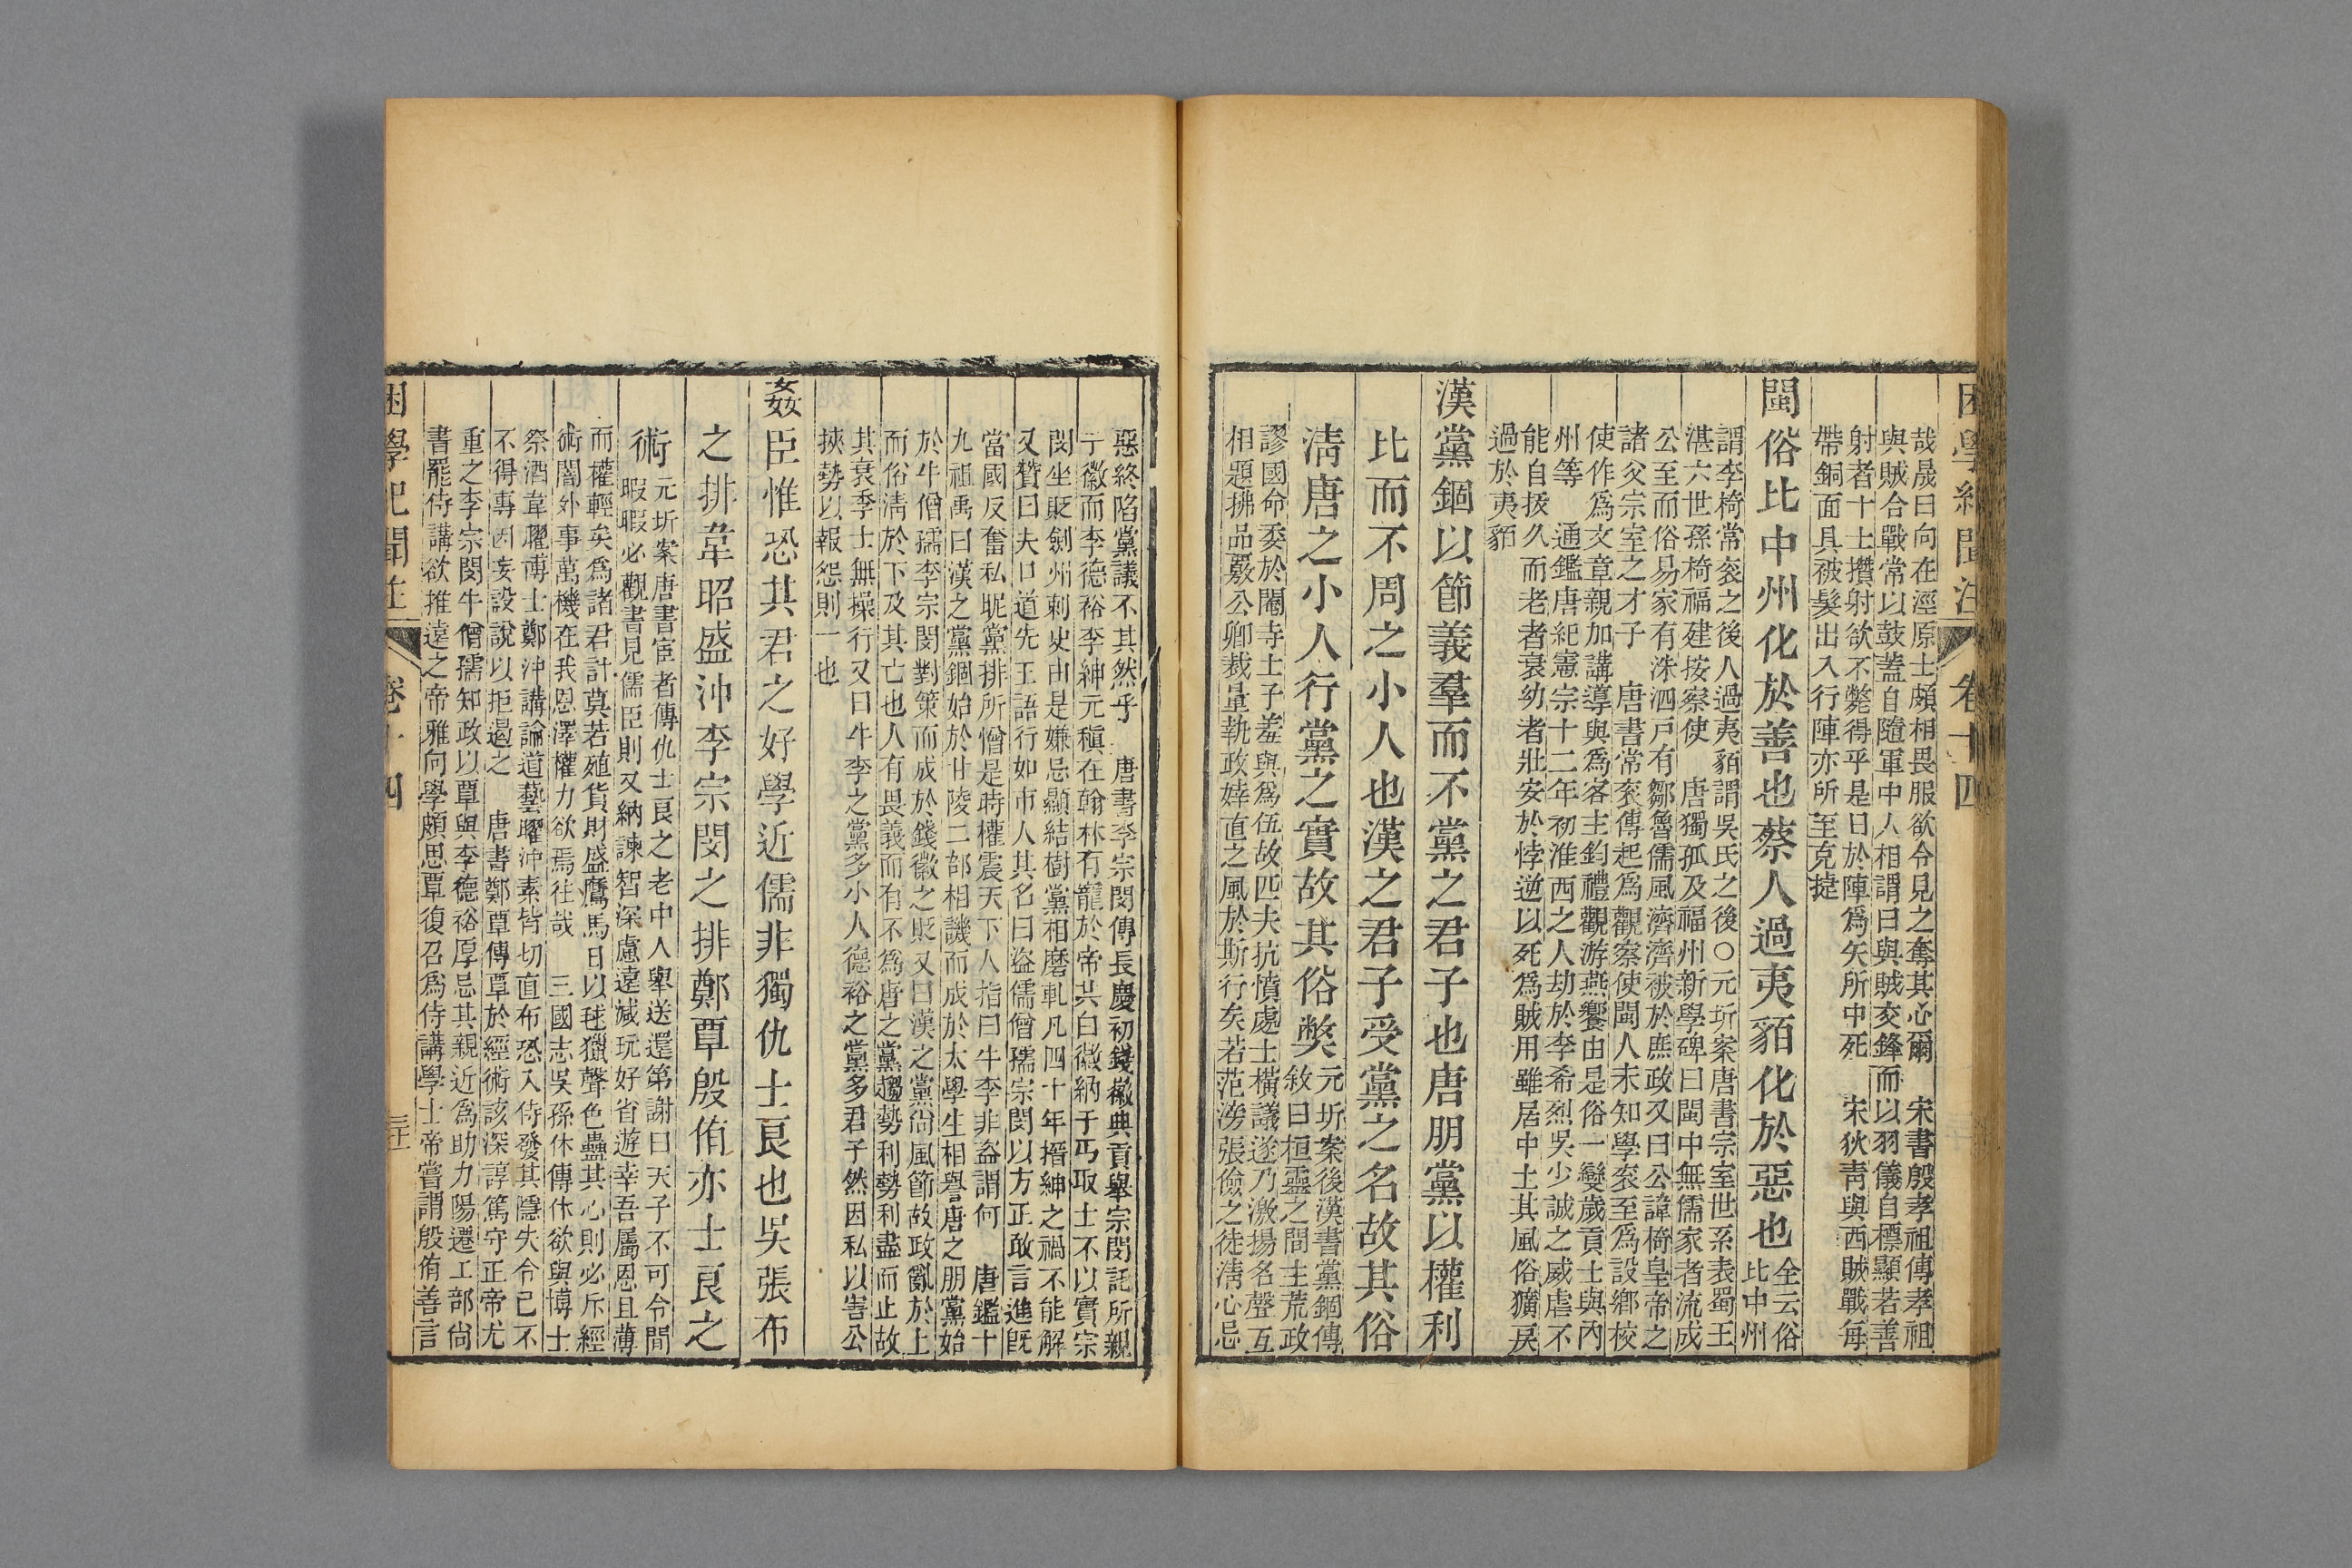 困學紀聞注 卷十四
哉晟曰向在涇原士頗相畏服欲令見之奪其心爾 宋書殷孝祖傳孝祖
與賊合戰常以鼓蓋自隨軍中人相謂曰與賊交鋒而以羽儀自標顯若善
射者十士攢射欲不斃得乎是日於陣爲矢所中死 宋狄靑與西賊戰每
帶銅面具被髮出入行陣亦所至克㨗
閩俗比中州化於善也蔡人過夷貊化於惡也
全云俗
比中州
謂李椅常衮之後人過夷貊謂吳氏之後○元圻案唐書宗室世系表蜀王
湛六世孫椅福建按察使 唐獨孤及福州新學碑曰閩中無儒家者流成
公至而俗易家有洙泗戶有鄒魯儒風濟濟被於庶政又曰公諱椅皇帝之
諸父宗室之才子 唐書常衮傳起爲觀察使閩人未知學衮至爲設鄉校
使作爲文章親加講導與爲客主鈞禮觀游燕饗由是俗一變歲貢士與內
州等 通鑑唐紀憲宗十二年初淮西之人劫於李希烈吳少誠之威虐不
能自拔久而老者衰幼者壯安於悖逆以死爲賊用雖居中土其風俗獷戾
過於夷貊
漢黨錮以節義羣而不黨之君子也唐朋黨以權利
比而不周之小人也漢之君子受黨之名故其俗
淸唐之小人行黨之實故其俗獘
元圻案後漢書黨錮傳
敘曰桓靈之間主荒政
謬國命委於閹寺士子羞與爲伍故匹夫抗憤處士橫議遂乃激揚名聲互
相題拂品覈公卿裁量執政婞直之風於斯行矣若范滂張儉之徒淸心忌
惡終陷黨議不其然乎 唐書李宗閔傳長慶初錢徽典貢舉宗閔託所親
于徽而李德裕李紳元稹在翰林有寵於帝共白徽納于丐取士不以實宗
閔坐貶劍州刺史由是嫌忌顯結樹黨相磨軋凡四十年搢紳之禍不能解
又贊曰夫口道先王語行如市人其名曰盜儒僧孺宗閔以方正敢言進旣
當國反奮私昵黨排所憎是時權震天下人指曰牛李非盜謂何 唐鑑十
九祖禹曰漢之黨錮始於甘陵二部相譏而成於太學生相譽唐之朋黨始
於牛僧孺李宗閔對策而成於錢徽之貶又曰漢之黨尙風節故政亂於上
而俗淸於下及其亡也人有畏義而有不爲唐之黨趨勢利勢利盡而止故
其衰季士無操行又曰牛李之黨多小人德裕之黨多君子然因私以害公
挾勢以報怨則一也
姦臣惟恐其君之好學近儒非獨仇士良也吳張布
之排韋昭盛沖李宗閔之排鄭覃殷侑亦士良之
術
元圻案唐書宦者傳仇士良之老中人舉送還第謝曰天子不可令閒
暇暇必觀書見儒臣則又納諫智深慮遠減玩好省遊幸吾屬恩且薄
而權輕矣爲諸君計莫若殖貨財盛鷹馬日以毬獵聲色蠱其心則必斥經
術闇外事萬機在我恩澤權力欲焉往哉 三國志吳孫休傳休欲與博士
祭酒韋曜博士鄭沖講論道藝曜沖素皆切直布恐入侍發其隱失令己不
不得專因妄設說以拒遏之 唐書鄭覃傳覃於經術該深諄篤守正帝尤
重之李宗閔牛僧孺知政以覃與李德裕厚忌其親近爲助力陽遷工部尙
書罷侍講欲推遠之帝雅向學頗思覃復召爲侍講學士帝嘗謂殷侑善言
困學紀聞注 卷十四